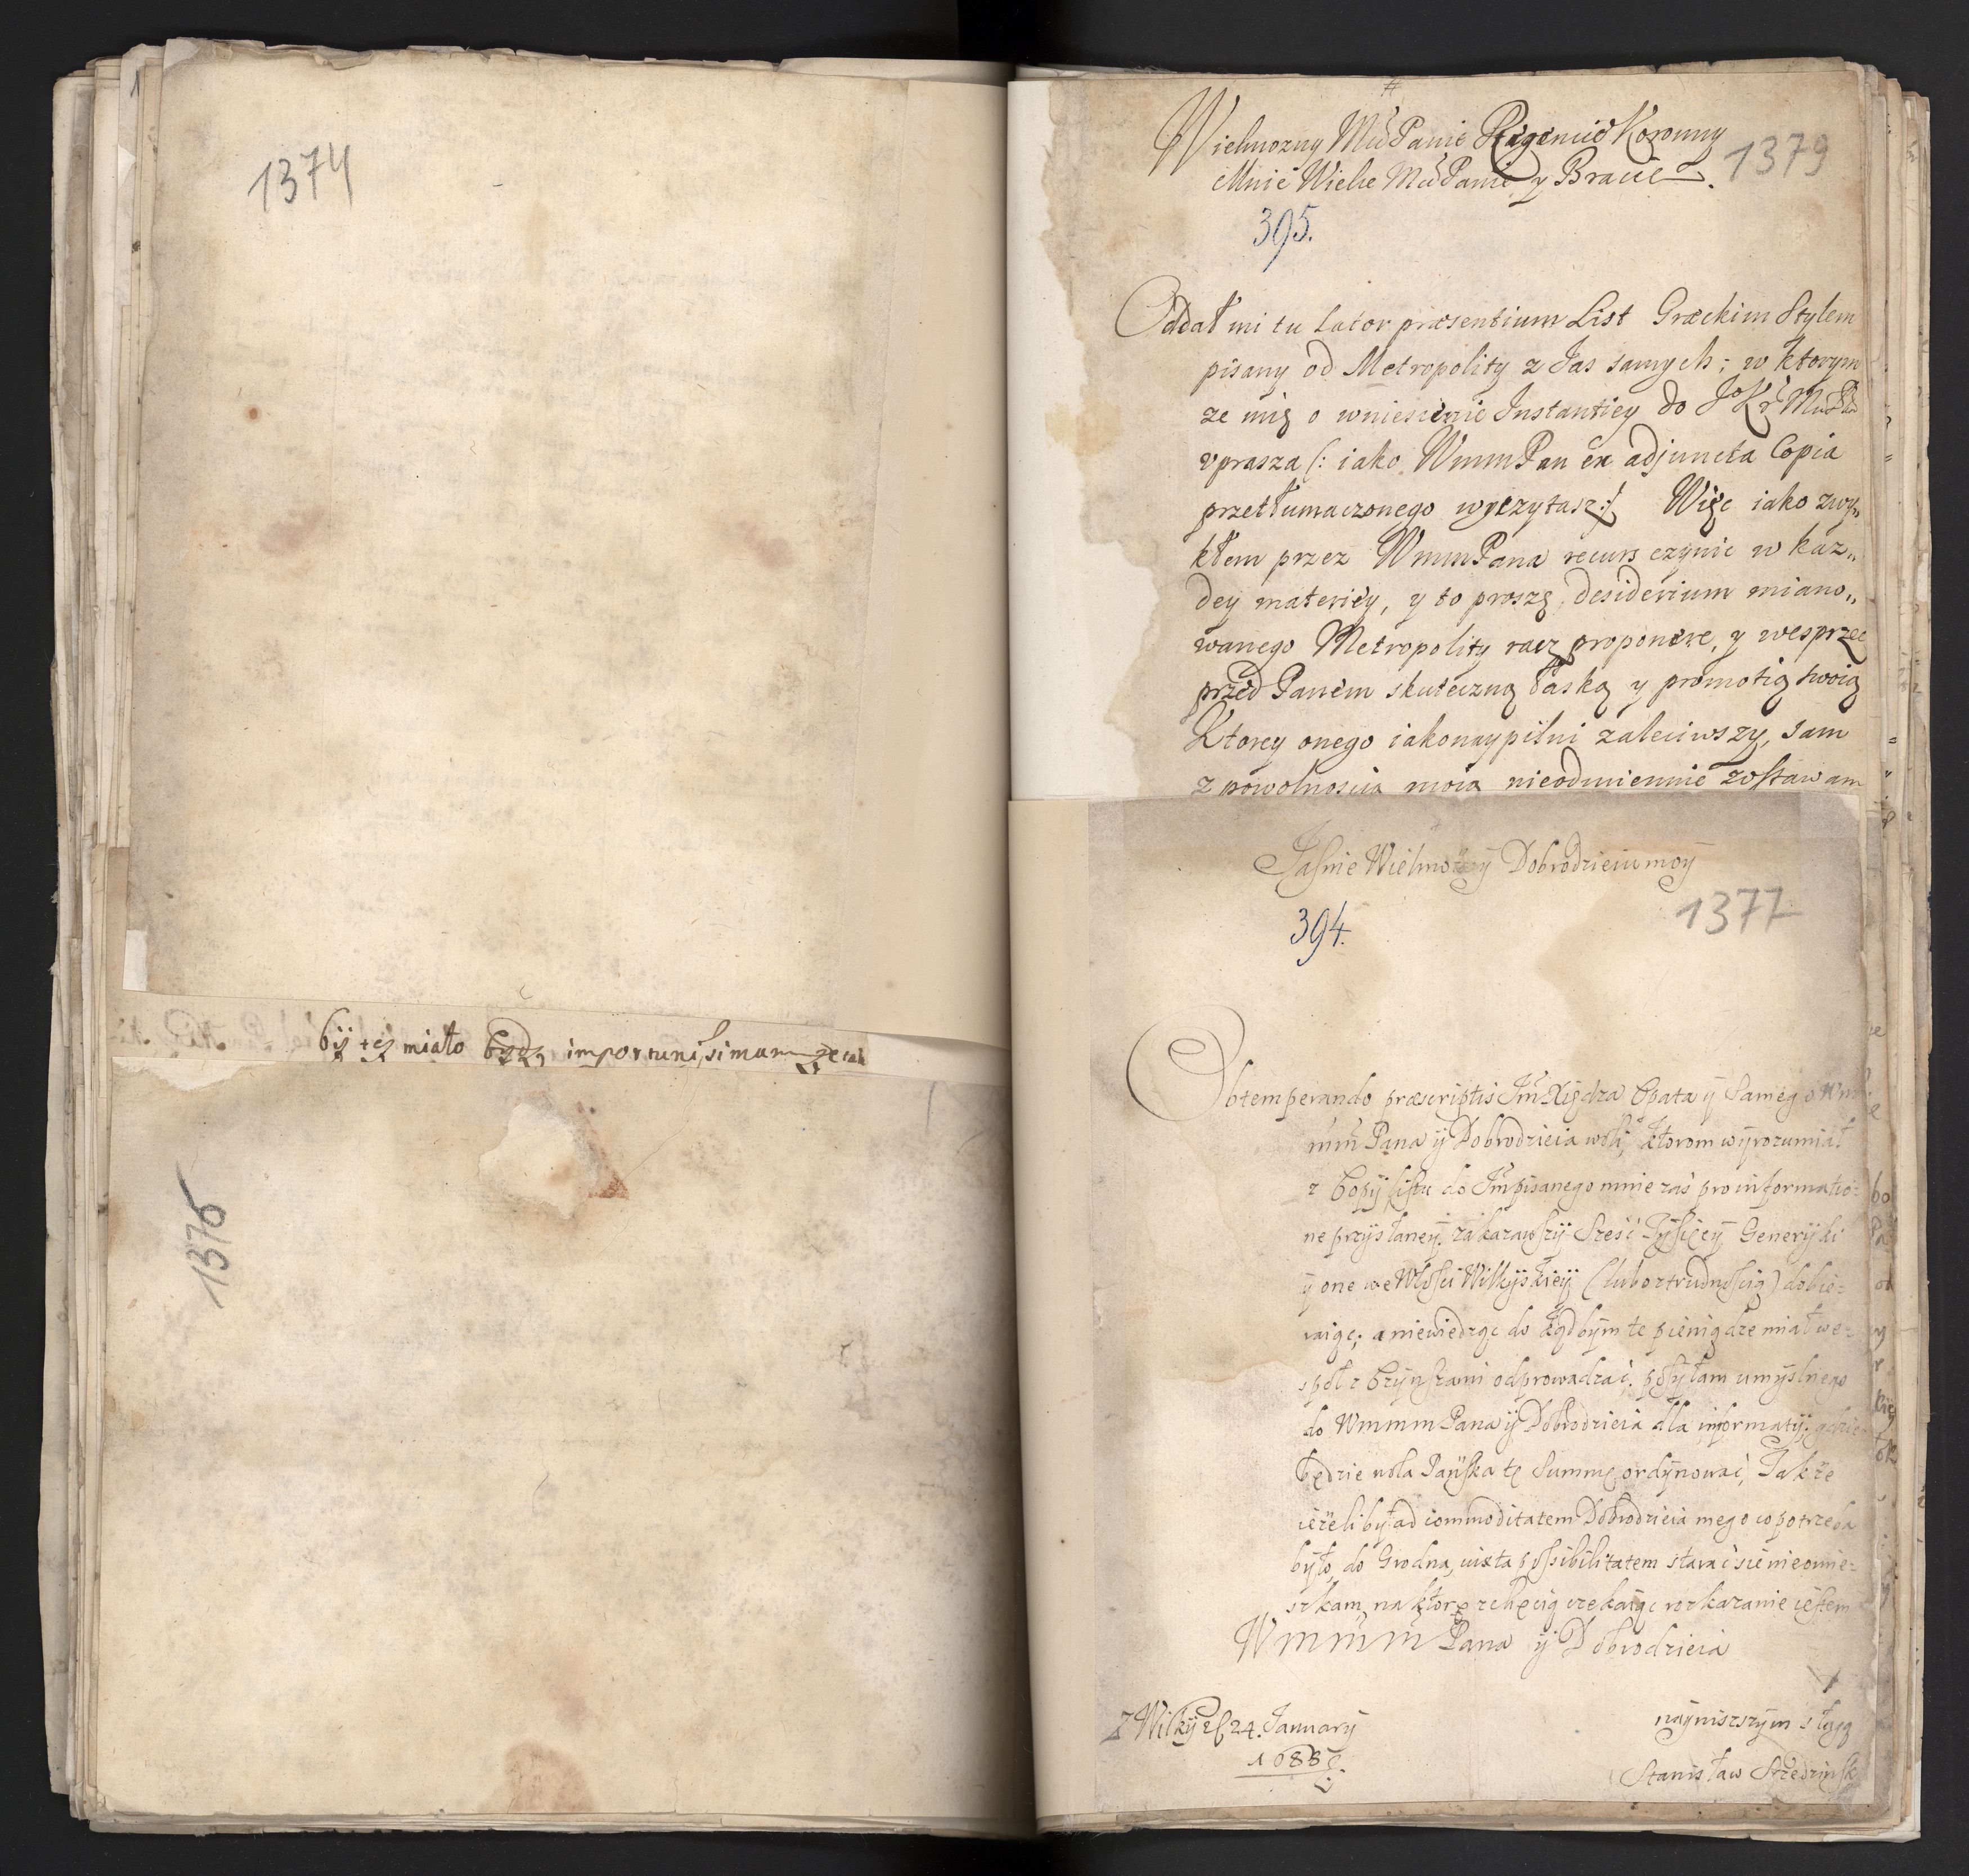 1374
bÿ tesz miało importunissimum
1376
Wielmozny Mći Panie Regencie Koronny
Mnie Wielce Mći Panie y Bracie.
1379
395.
Oddał mi tu Lator præsentium List Græckim Stylem
pisany od Metropolity z Jas samych; w ktorym
ze mię o wniesienie Instantiey do
vprasza (: iako WmmPan ex adjuncta Copia
przetłumaczonego wyczytasz :) Więc iako zwy„
kłem przez WmmPana recurs czynic w kaz„
dey materiey, y to proszę, desiderium miano„
wanego Metropolity racz proponere, y wesprzec
przed Panem skuteczną łaską y promotią twoią
Ktorey onego iakonaypilni zaleciwszy, sam
z powolnoscią moią nieodmiennie zostawam
Jasnie Wielmozÿ Dobrodzieiu moÿ
394.
1377
Obtemperando præscriptis Jm̃ Xiędza Opata ÿ Samego
Pana ÿ Dobrodzieia woli, ktorom wÿrozumiał
z Copÿ listu do Jm̃ pisanego mnie zas pro informatio=
ne przÿsłaneÿ, zakazawszÿ Szesc Tÿsięcÿ Generÿki
ÿ one we Włosci Wilkÿskieÿ (lubo z trudnoscią) dobie=
raiąc; a niewiedząc do kąd bÿm te pieniądze miał we=
społ z Czÿnszami odprowadzac, posÿłam umÿslnego
do Wmmm Pana ÿ Dobrodzieia dla informatÿi, gdzie
będzie wola Pańska tę Summę ordÿnowac, Takze
iezeli bÿ ad commoditatem Dobrodzieia mego co potrzeba
bÿło, do Grodna, iuxta possibilitatem starac się nieomie=
szkam, na ktore z chęcią czekaiąc rozkazanie iestem
Wmmm Pana ÿ Dobrodzieia
Z Wilkÿ 24. Januarÿ
1688
naÿniszszÿm sługą
Stanisław